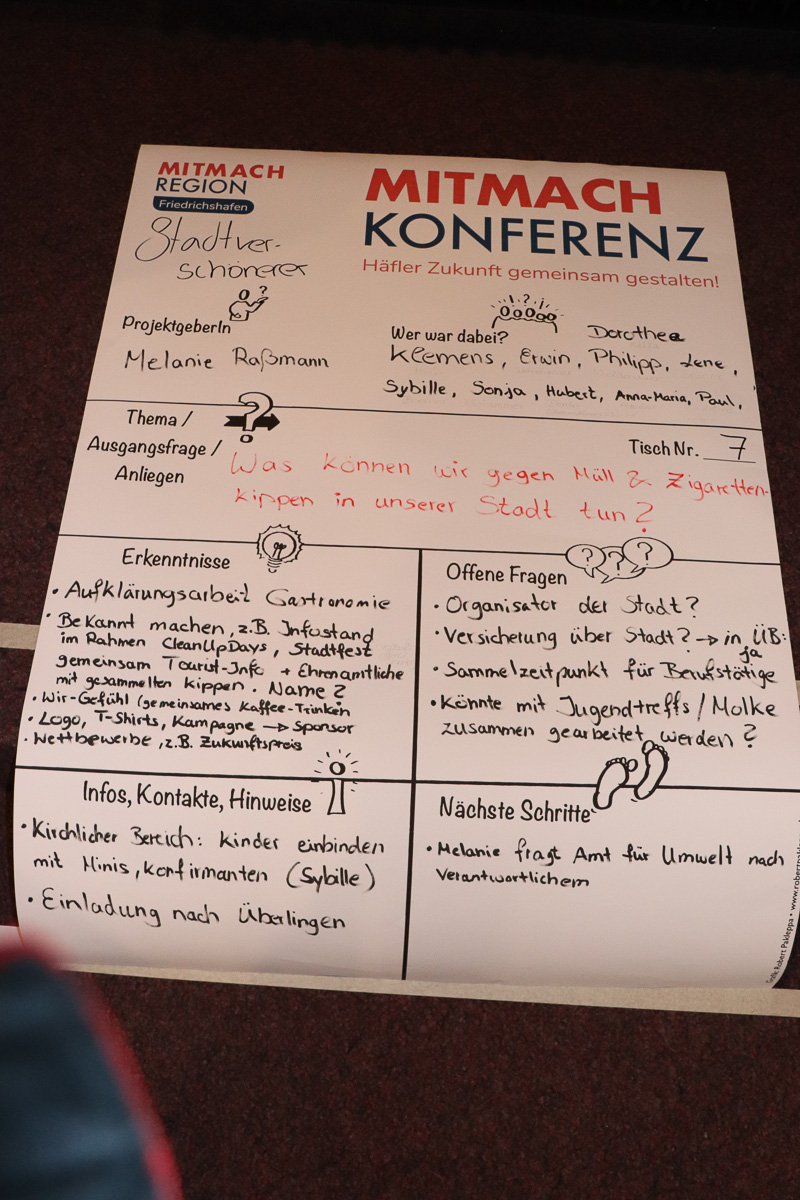 MITMACH
REGION
Friedrichshafen
Stadtver-
schönerer
MITMACH
KONFERENZ
Häfler Zukunft gemeinsam gestalten!
ProjektgeberIn
Melanie Raßmann
Wer war dabei? Dorothea
Klemens, Erwin, Philipp, Lene,
Sybille, Sonja, Hubert, Anna-Maria, Paul,
Thema /
Ausgangsfrage /
Anliegen
Tisch Nr. 7
Was können wir gegen Müll & Zigaretten-
kippen in unserer Stadt tun?
Erkenntnisse
• Aufklärungsarbeit Gastronomie
• Bekannt machen, z.B. Infostand
im Rahmen CleanUpDays, Stadtfest
gemeinsam Tourist-Info + Ehrenamtliche
mit gesammelten Kippen. Name?
• Wir-Gefühl (gemeinsames Kaffee-Trinken
• Logo, T-Shirts, Kampagne → Sponsor
• Wettbewerbe, z.B. Zukunftspreis
Offene Fragen
• Organisator der Stadt?
• Versicherung über Stadt? → in ÜB:
ja
• Sammelzeitpunkt für Berufstötige
• Könnte mit Jugendtreffs / Molke
zusammen gearbeitet werden?
Infos, Kontakte, Hinweise
• Kirchlicher Bereich: Kinder einbinden
mit Minis, Konfirmanten (Sybille)
• Einladung nach Überlingen
Nächste Schritte
• Melanie fragt Amt für Umwelt nach
Verantwortlichem
Robert Pakleppa • www.robertpak